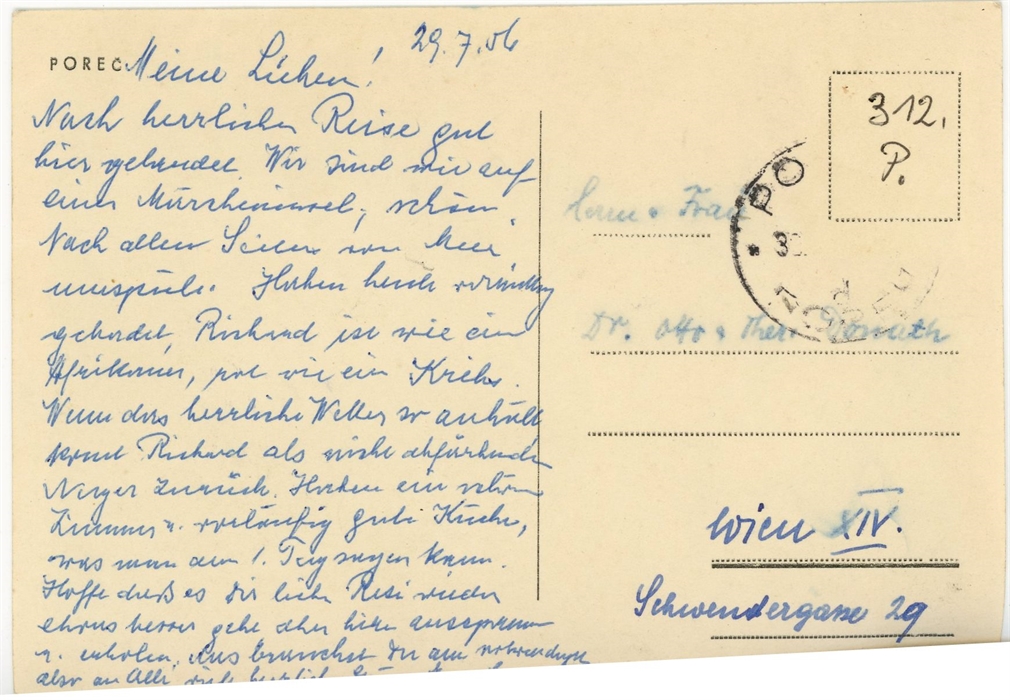 POREČ
29.7.56
Meine Lieben!
Nach herrlicher Reise gut
hier gelandet. Wir sind wie auf
einer Märcheninsel, schön.
Nach allen Seiten vom Meer
umspült. Haben heute
gebadet, Richard ist wie ein
Afrikaner, rot wie ein Krebs.
Wenn das herrliche Wetter so anhält
kommt Richard als nicht abfärbender
Neger zurück. Haben ein schönes
Zimmer u. vorläufig gute Küche,
was man am 1. Tag sagen kann.
Hoffe daß es Dir liebe Resi wieder
etwas besser geht aber
u. erholen, das brauchst Du am notwendigsten
also an Alle
312.
P.
PO
Herrn u Frau
Dr. Otto u Donath
Wien XIV.
Schwendergasse 29